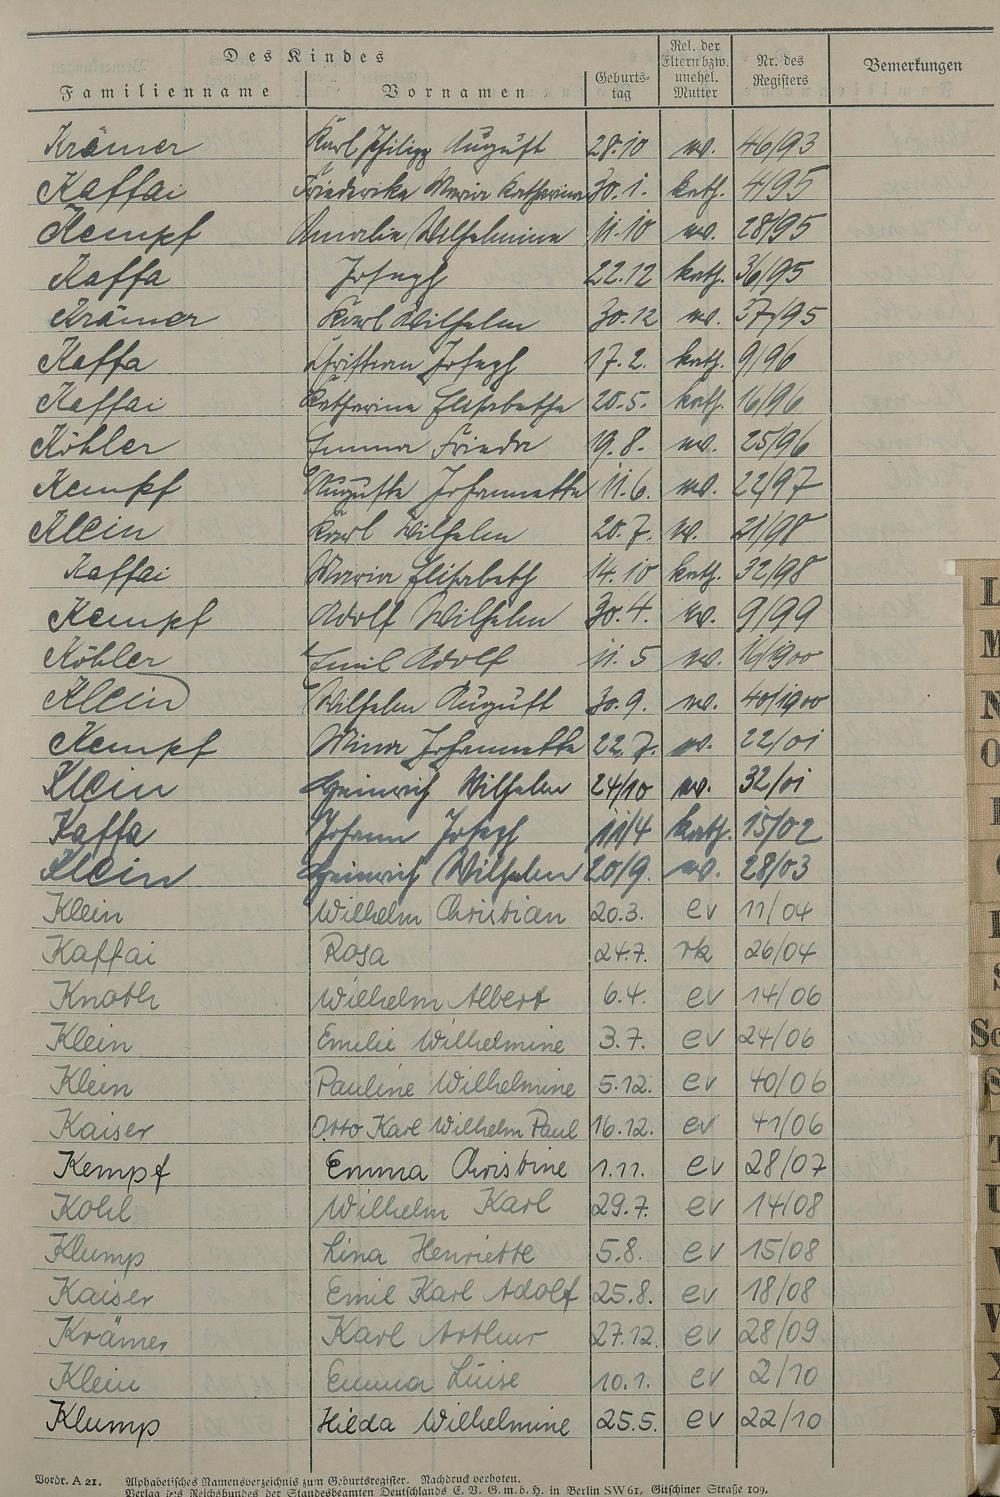 Des Kindes
Familienname Vornamen Geburts-tag Rel. der Eltern bzw. unehel. Mutter Nr. des Registers Bemerkungen
Krämer Karl Philipp August 28.10 ev. 46/93
Kaffai Friederike Maria Katharina 30.1. kath. 4/95
Kempf Amalie Wilhelmine 11.10 ev. 28/95
Kaffa Joseph 22.12 kath. 36/95
Krämer Karl Wilhelm 30.12 ev. 37/95
Kaffa Christian Joseph 17.2. kath. 9/96
Kaffai Katharina Elisabetha 20.5. kath. 16/96
Köhler Emma Frieda 19.8. ev. 25/96
Kempf Auguste Johannette 11.6. ev. 22/97
Klein Karl Wilhelm 20.7. ev. 21/98
Kaffai Maria Elisabeth 14.10 kath. 32/98
Kempf Adolf Wilhelm 30.4. ev. 9/99
Köhler Emil Adolf 11.5 ev.
Klein Wilhelm August 30.9. ev. 40/1900
Kempf Mina Johannette 22.7. ev. 22/01
Klein Heinrich Wilhelm 24/10 ev. 32/01
Kaffa Johann Joseph 11/4 kath. 15/02
Klein Heinrich Wilhelm 20/9. ev. 28/03
Klein Wilhelm Christian 20.3. ev 11/04
Kaffai Rosa 24.7. rk 26/04
Knoth Wilhelm Albert 6.4. ev 14/06
Klein Emilie Wilhelmine 3.7. ev 24/06
Klein Pauline Wilhelmine 5.12. ev 40/06
Kaiser Otto Karl Wilhelm Paul 16.12. ev 41/06
Kempf Emma Christine 1.11. ev 28/07
Kohl Wilhelm Karl 29.7. ev 14/08
Klump Lina Henriette 5.8. ev 15/08
Kaiser Emil Karl Adolf 25.8. ev 18/08
Krämer Karl Arthur 27.12. ev 28/09
Klein Emma Luise 10.1. ev 2/10
Klump Hilda Wilhelmine 25.5. ev 22/10
Vordr. A 21. Alphabetisches Namensverzeichnis zum Geburtsregister. Nachdruck verboten.
Verlag des Reichsbundes der Standesbeamten Deutschlands E. V. G. m. b. H. in Berlin SW 61, Gitschiner Straße 109.
L
M
N
O
S
Sc
S
T
U